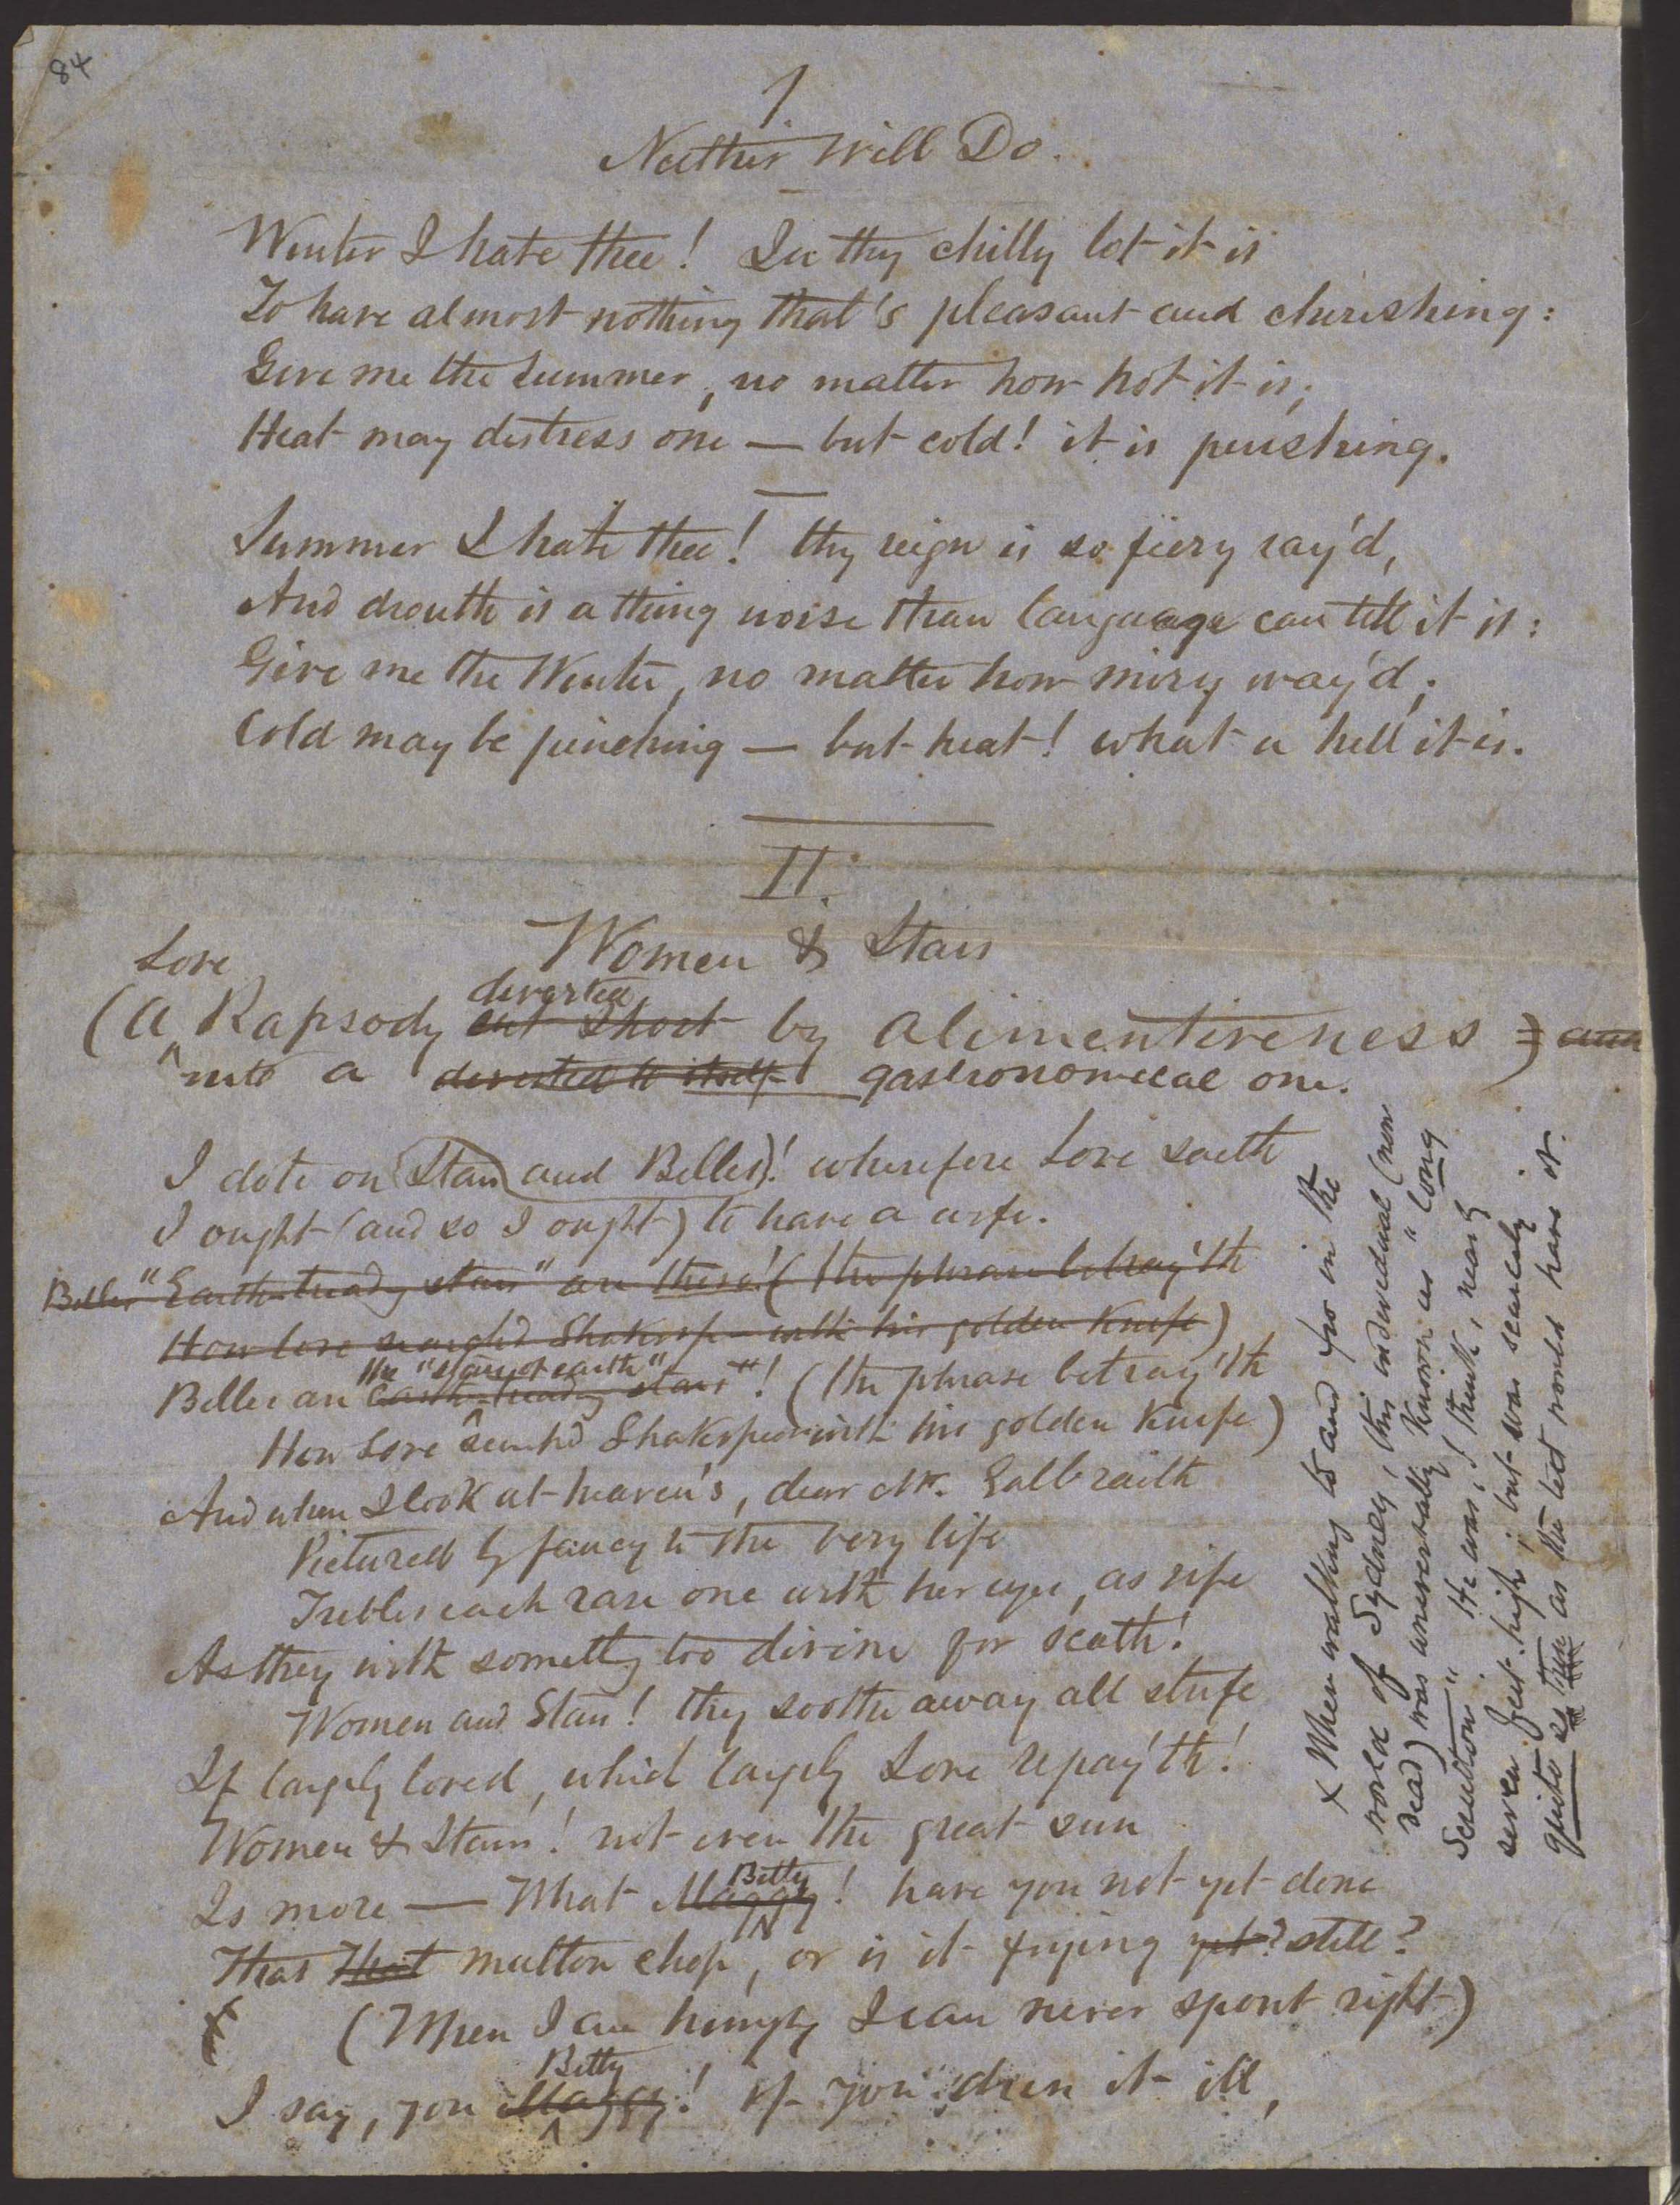 84
I
Neither Will Do.
Winter I hate thee! In thy chilly lot it is
To have almost nothing that's pleasant and cherishing:
Give me the Summer, no matter how hot it is;
Heat may distress one — but cold! it is perishing.
Summer I hate thee! thy reign is so fiery ray'd,
And drouth is a thing worse than language can tell it is:
Give me the Winter, no matter how miry way'd;
Cold may be pinching — but heat! what a hell it is.
II.
Women & Stars
Love
diverted
(A Rapsody cut short by alimentiveness)
into a diverted to itself gastronomical one.
I dote on Stars and Belles! wherefore Love saith
I ought (and so I ought) to have a wife.
Belles "Earth-treading stars" are these! (the phrase betray'th
How love Shakesp with his golden Knife)
the "stars of earth"
Belles are Earth-treading stars"! (the phrase betray'th
How Love Shakspear with his golden Knife)
And when I look at heaven's, dear Mr. Galbraith
Pictured by fancy to the very life
Trebles each rare one with her eyes, as rife
As they with something too divine for scath!
Women and Stars! they soothe away all strife
If largely loved, which largely Love repay'th!
Women & Stars! not even the great sun
Betty
Is more — What Maggy! have you not yet done
That That mutton chop, or is it frying yet? still?
(When I am hungry I can never spout right)
Betty
I say, you Maggy! if you do it ill,
x When walking to and fro in the
world of Sydney, this individual (now
dead) was universally known as "Long
Scuttson". He was, I think, nearly
seven feet high; but was scarcely
quite so as the text would have it.